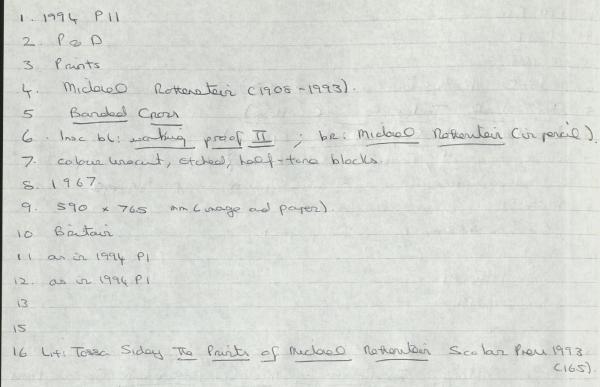 1. 1994 P11
2 P&D
3 Prints
4. Michael Rothenstein (1908-1993).
5 Banded Cross
6. Insc bl: working proof II ; br: Michael Rothenstein (in pencil).
7. colour linocut, etched, half-tone blocks.
8. 1967
9. 590 x 765 mm (image and paper).
10 Britain
11 as in 1994 P1
12. as in 1994 P1
13
15
16 Lit: Tessa Sidey The Prints of Michael Rothenstein Scolar Press 1993
(165).